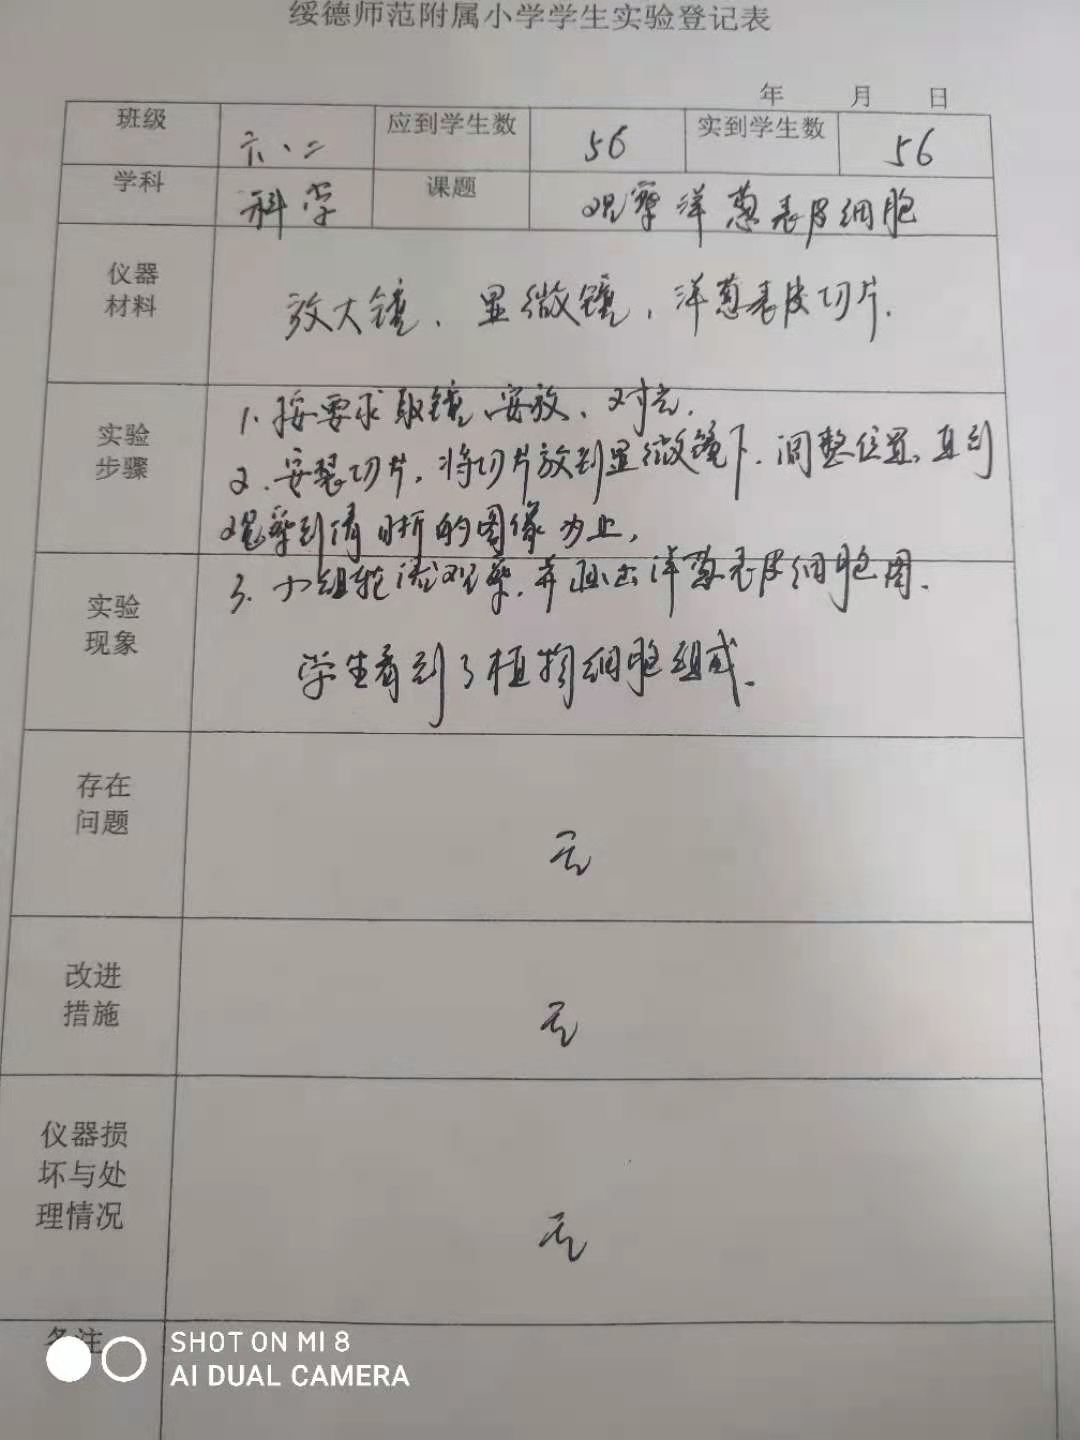 绥德师范附属小学学生实验登记表
年 月 日
班级 六、二 应到学生数 56 实到学生数 56
学科 科学 课题 观察洋葱表皮细胞
仪器
材料
放大镜、显微镜、洋葱表皮切片.
实验
步骤
1. 按要求取镜、安放、对光.
2. 安装切片, 将切片放到显微镜下, 调整位置, 直到
观察到清晰的图像为止,
3. 小组轮流观察, 并画出洋葱表皮细胞图.
实验
现象
学生看到了植物细胞组成.
存在
问题
无
改进
措施
无
仪器损
坏与处
理情况
无
备注
SHOT ON MI 8
AI DUAL CAMERA